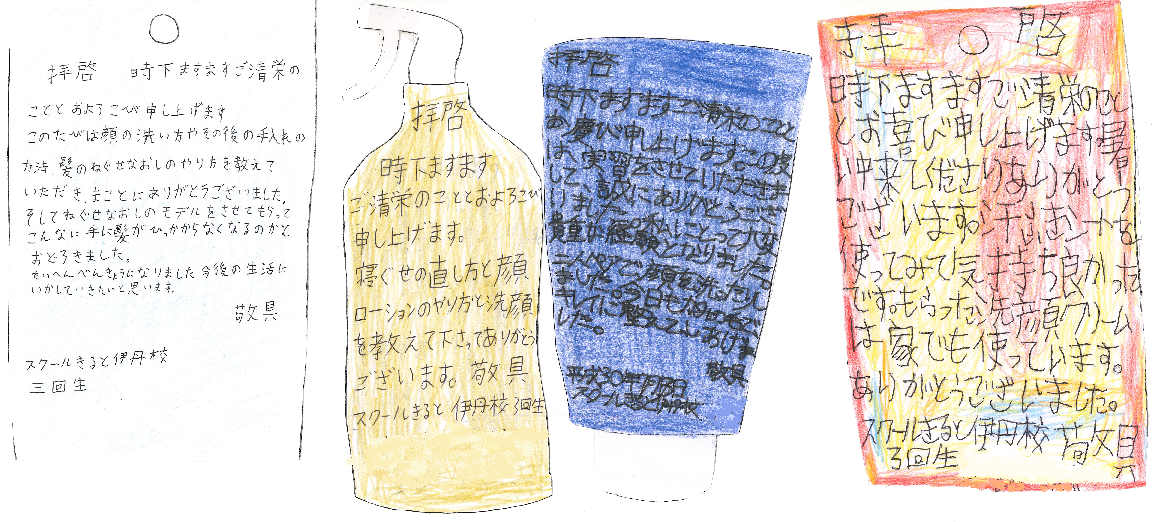 拝啓　時下ますますご清栄の
こととおよろこび申し上げます
このたびは顔の洗い方やその後の手入れの
方法、髪のねぐせなおしのやり方を教えて
いただき、まことにありがとうございました。
そしてねぐせなおしのモデルをさせてもらって
こんなに手に髪がひっかからなくなるのかと
おどろきました。
たいへんべんきょうになりました今後の生活に
いかしていきたいと思います
敬具
スクールきると伊丹校
三回生
拝啓
時下ますます
ご清栄のこととおよろこび
申し上げます。
寝ぐせの直し方と顔
ローションのやり方と洗顔
を教えて下さってありがとう
ございます。敬具
スクールきると伊丹校3回生
拝啓
時下ますますご清栄のこと
お慶び申し上げますこの度
は、実習をさせていただきま
して、誠にありがとうござい
ました。私にとって大変
貴重な経験となりました。
二人ペアで洗顔を洗った人
ました。今日も
キレイに整えてあげま
した。
敬具
平成30年7月
スクールきると伊丹校
拝啓
時下ますますご清栄のこと
とお喜び申し上げます暑
い中来てくださりありがとう
ございます。汗ふきシートを
使ってみて気持ち良かった
です。もらった洗顔クリーム
は家でも使っています。
ありがとうございました。
スクールきると伊丹校
3回生　敬具